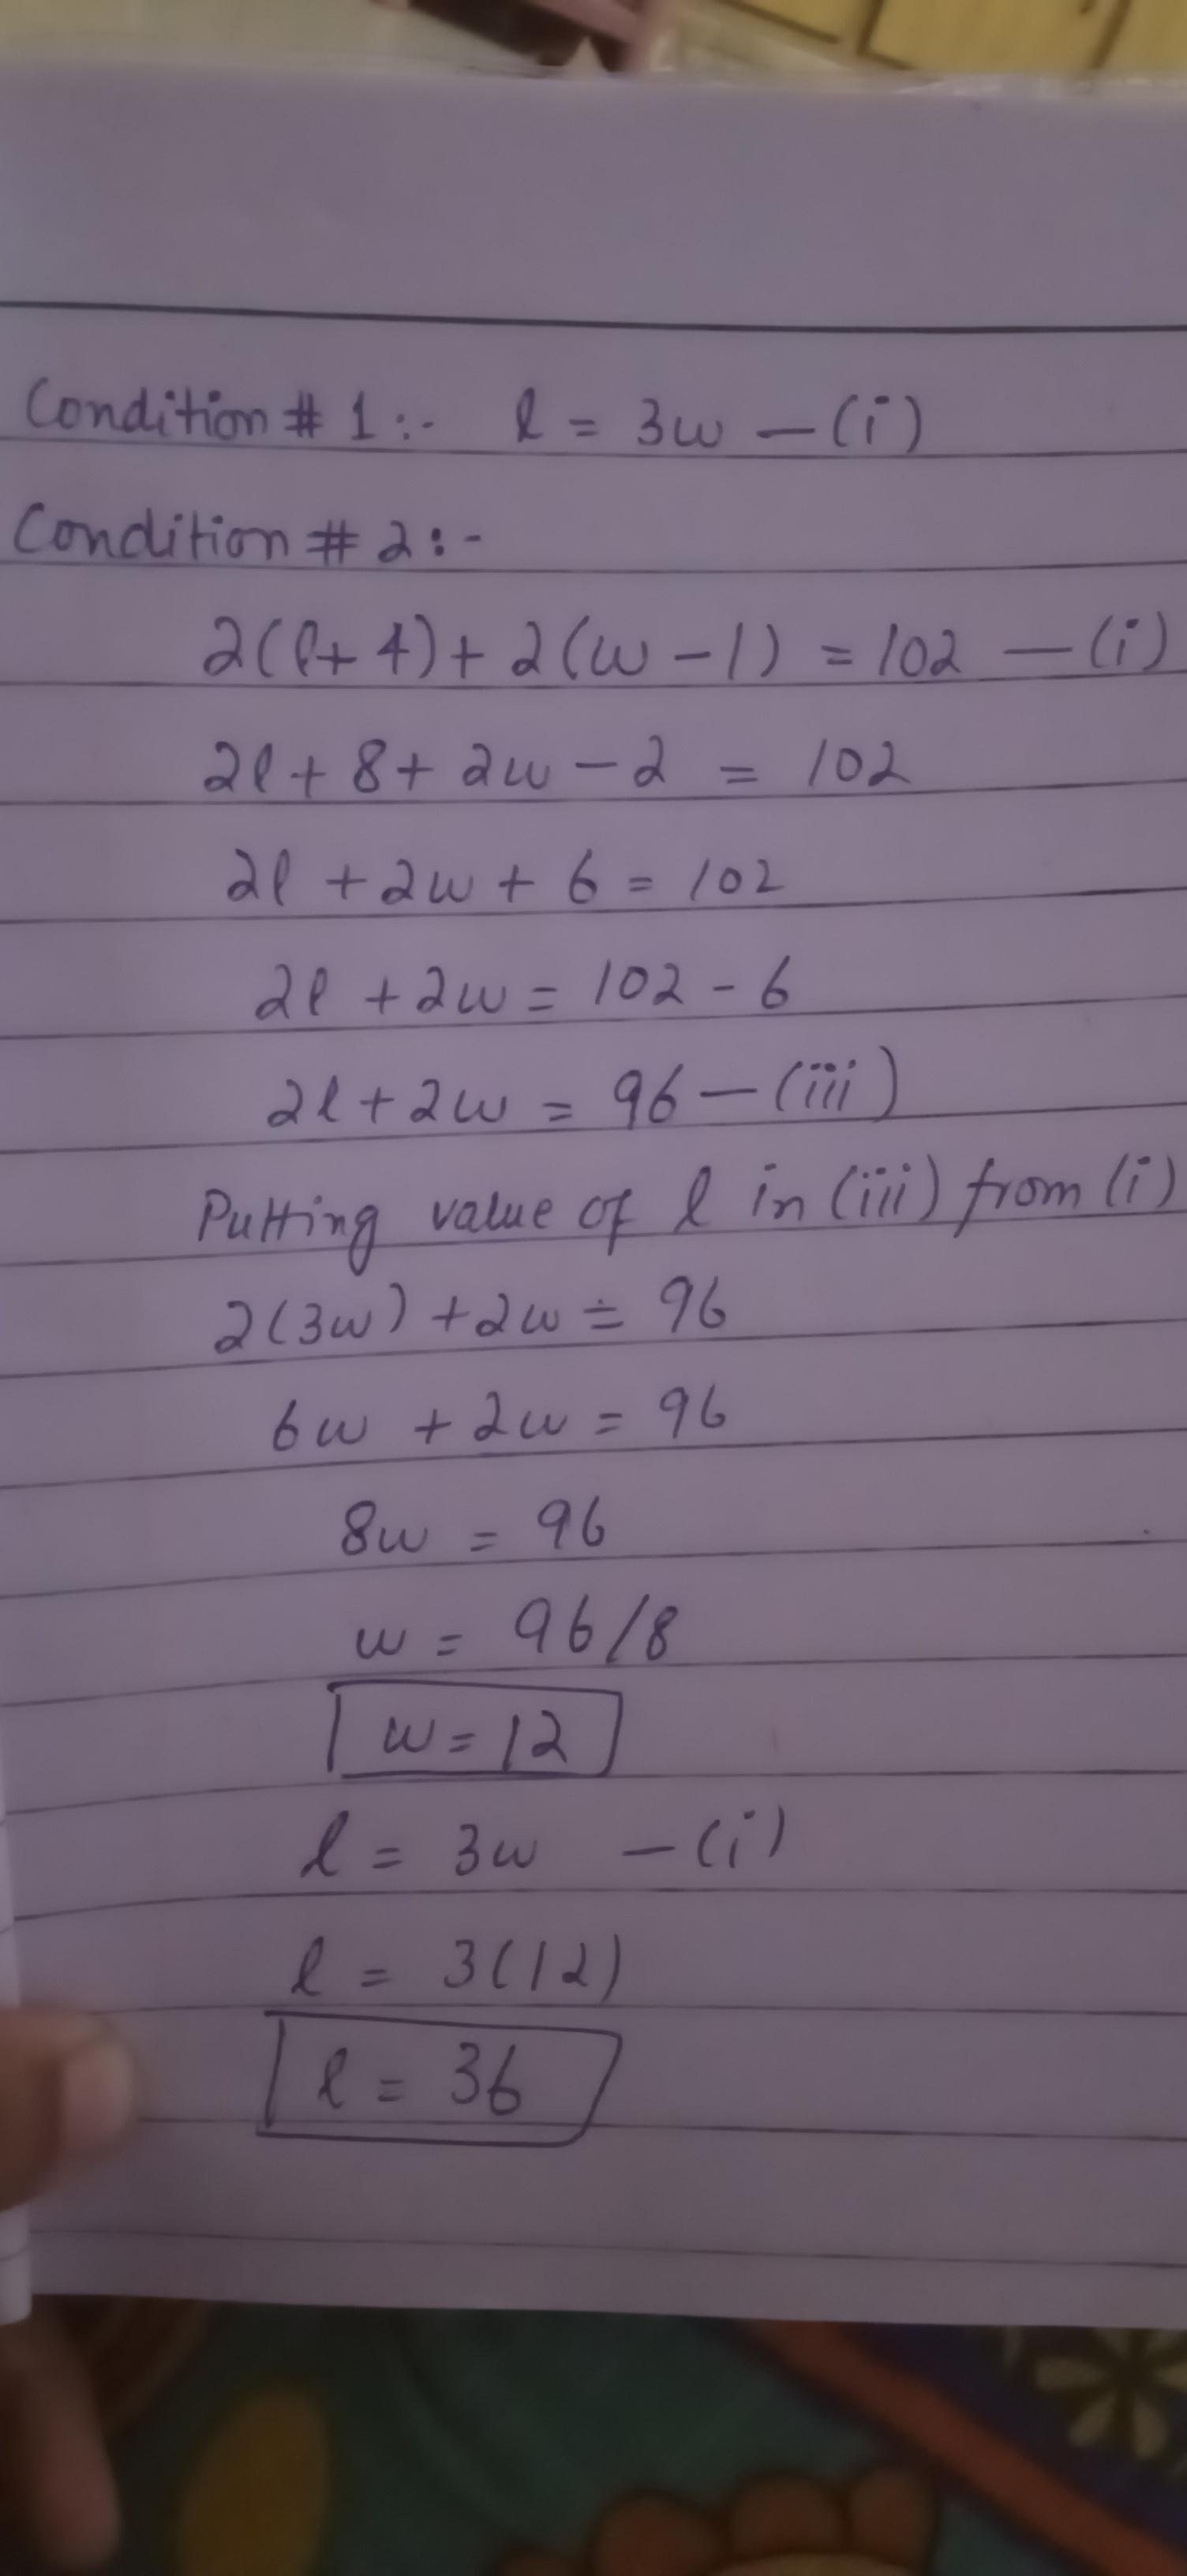 Condition # 1 :- l = 3w — (i)
Condition # 2 :-
2(l + 4) + 2(w - 1) = 102 — (i)
2l + 8 + 2w - 2 = 102
2l + 2w + 6 = 102
2l + 2w = 102 - 6
2l + 2w = 96 — (iii)
Putting value of l in (iii) from (i)
2(3w) + 2w = 96
6w + 2w = 96
8w = 96
w = 96/8
w = 12
l = 3w — (i)
l = 3(12)
l = 36